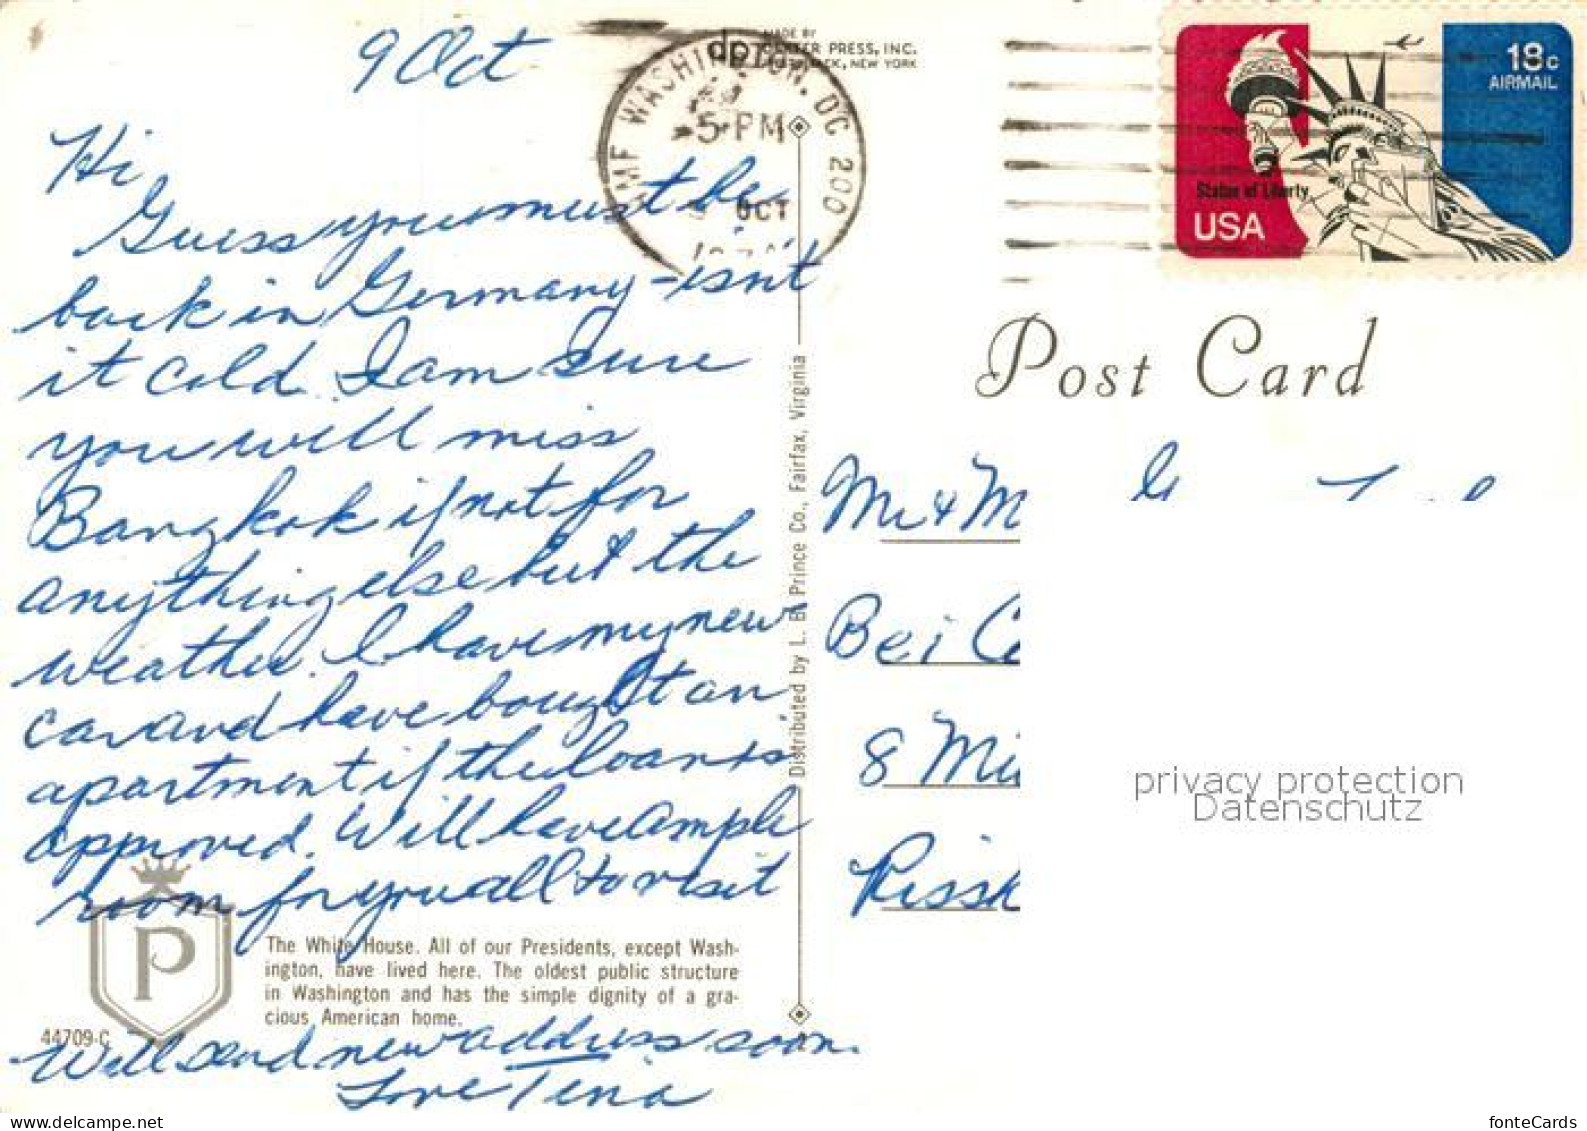 9 Oct
Hi
Guess you must be
back in Germany - isn't
it cold. I am sure
you will miss
Bangkok if not for
anything else but the
weather. I have my new
car and have bought an
apartment if the loan is
approved. Will have ample
room for you all to visit
Will send new address soon.
Love Tina
The White House. All of our Presidents, except Wash-
ington, have lived here. The oldest public structure
in Washington and has the simple dignity of a gra-
cious American home.
44709-C
P
dp MADE BY
DEXTER PRESS, INC.
NEW YORK
WASHINGTON, DC 200
5 PM
OCT
Distributed by L. B. Prince Co., Fairfax, Virginia
18c
AIRMAIL
Statue of Liberty
USA
Post Card
Mr & M
Bei
8
privacy protection
Datenschutz
fonteCards
www.delcampe.net